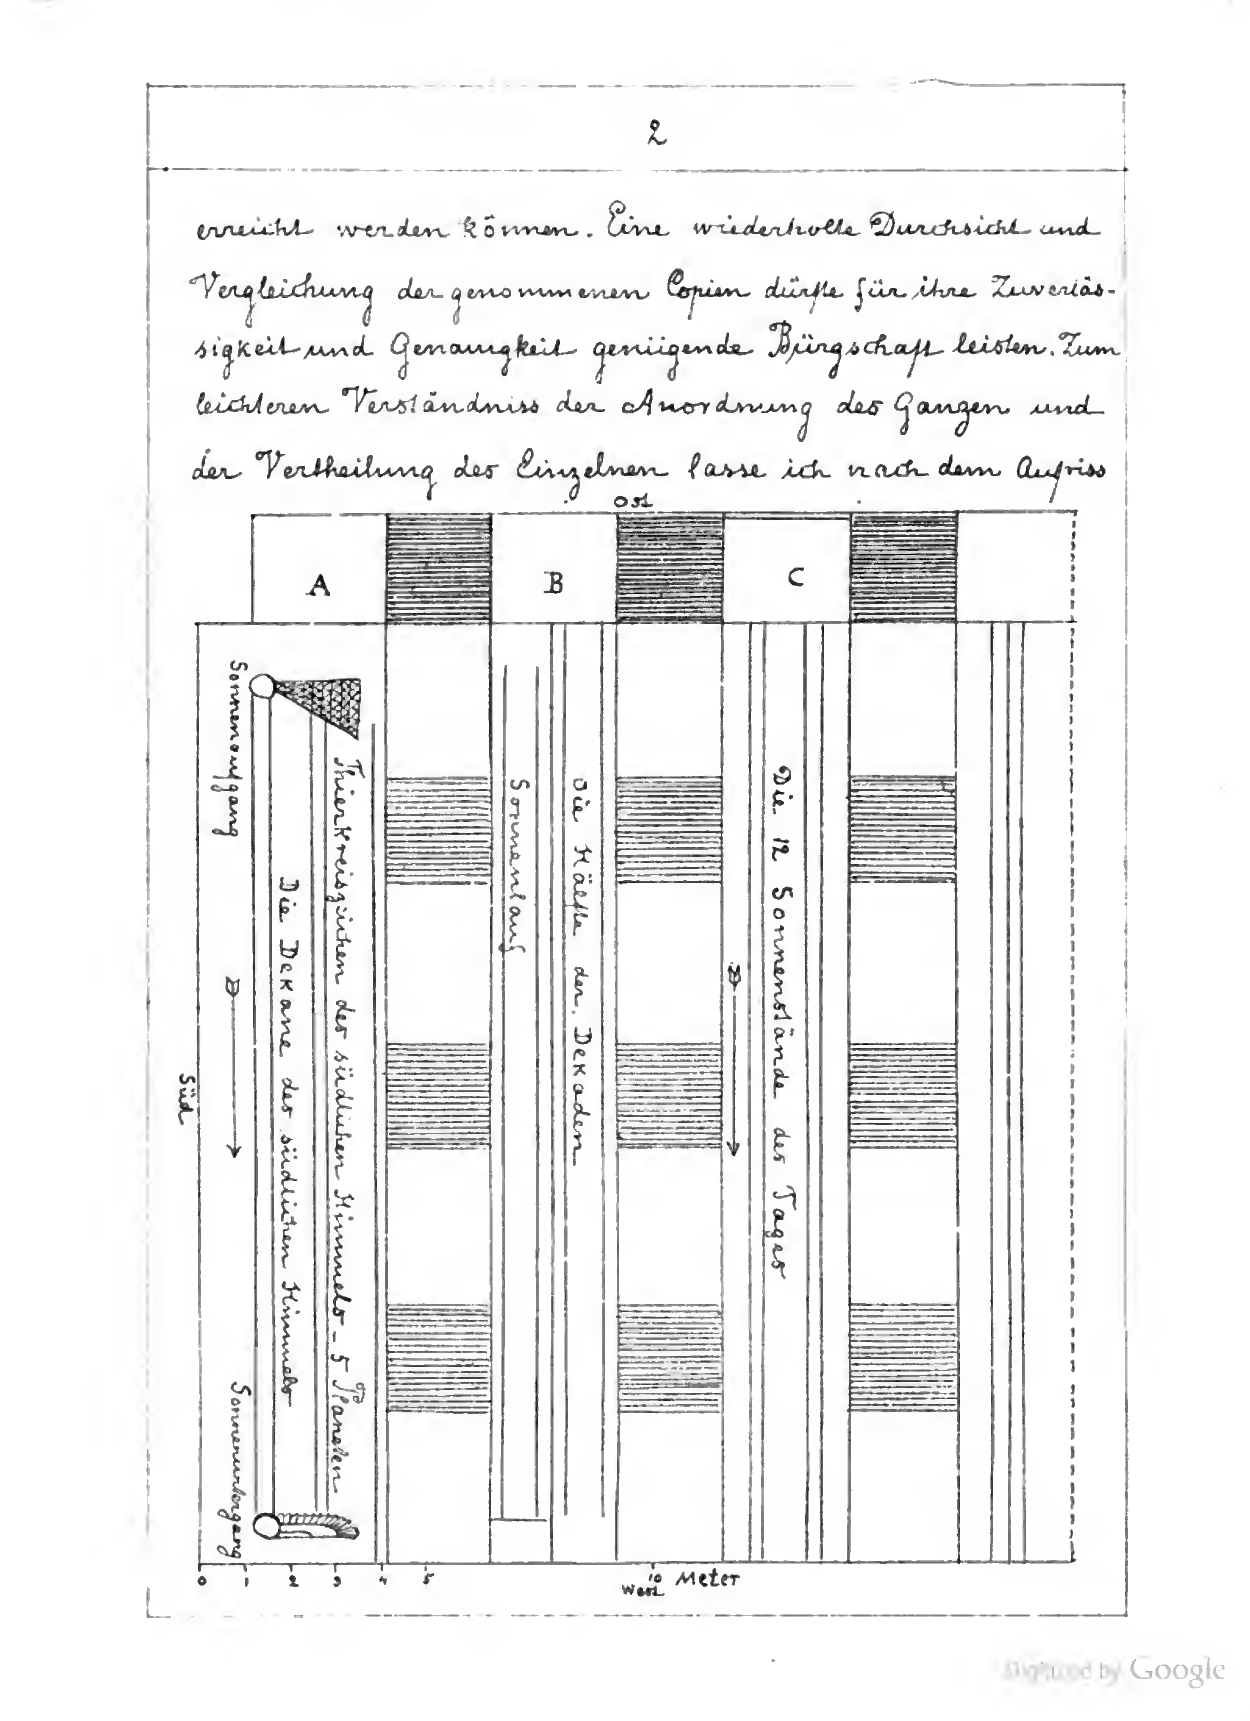 2
erreicht werden können. Eine wiederholte Durchsicht und
Vergleichung der genommenen Copien dürfte für ihre Zuverläs-
sigkeit und Genauigkeit genügende Bürgschaft leisten. Zum
leichteren Verständniss der Anordnung des Ganzen und
der Vertheilung des Einzelnen lasse ich nach dem Aufriss
Ost
A
B
C
Sonnenaufgang
Süd
Sonnenuntergang
Die Dekane des südlichen Himmels
Thierkreiszeichen des südlichen Himmels – 5 Planeten
Sonnenlauf
Die Hälfte der Dekaden
Die 12 Sonnenstände des Tages
0 1 2 3 4 5 10 Meter
West
Digitized by Google